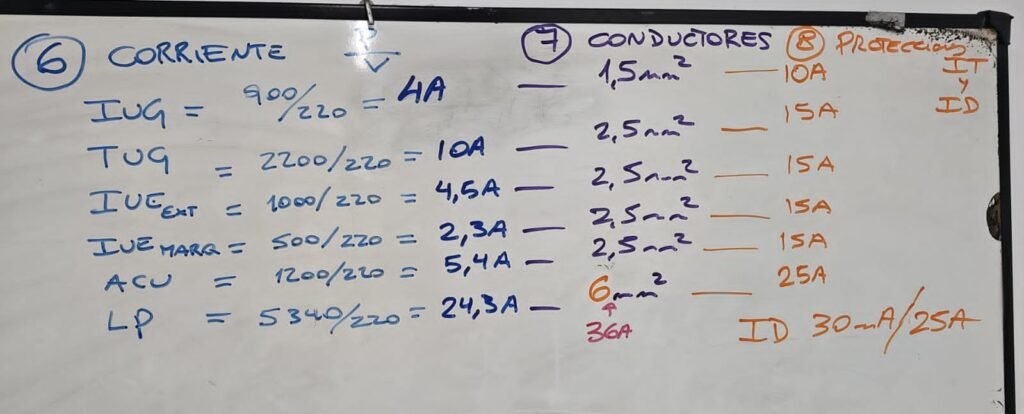 6 CORRIENTE P/V 7 CONDUCTORES 8 PROTECCION IT y ID
IUG = 900/220 = 4A — 1,5mm² — 10A
TUG = 2200/220 = 10A — 2,5mm² — 15A
IUE EXT = 1000/220 = 4,5A — 2,5mm² — 15A
IUE MARQ = 500/220 = 2,3A — 2,5mm² — 15A
ACU = 1200/220 = 5,4A — 2,5mm² — 15A
LP = 5340/220 = 24,3A — 6mm² — 25A
36A
ID 30mA/25A